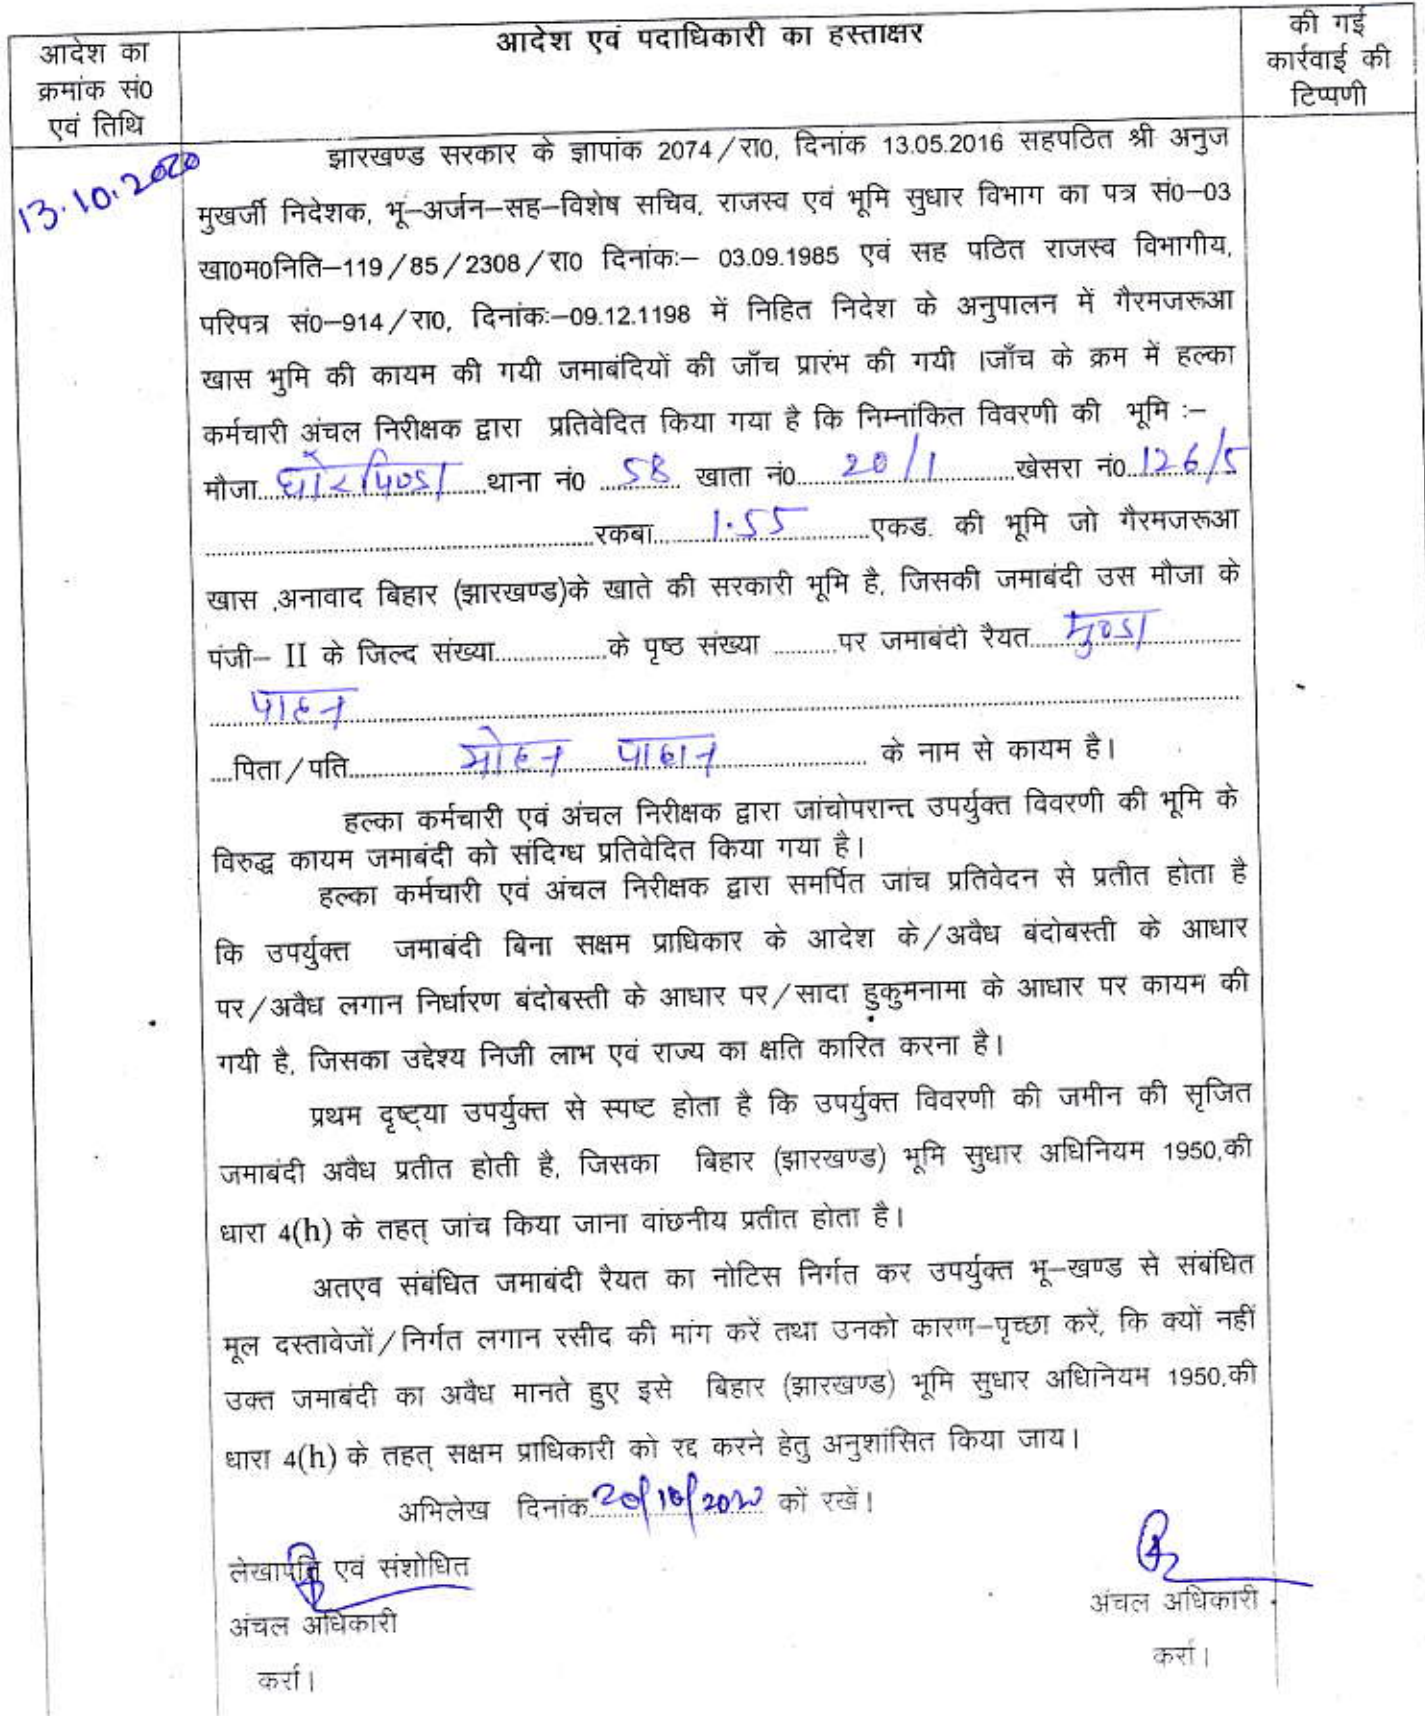 आदेश का
क्रमांक सं0
एवं तिथि
आदेश एवं पदाधिकारी का हस्ताक्षर
की गई
कार्रवाई की
टिप्पणी
13.10.2020
झारखण्ड सरकार के ज्ञापांक 2074/रा0, दिनांक 13.05.2016 सहपठित श्री अनुज
मुखर्जी निदेशक, भू–अर्जन–सह–विशेष सचिव, राजस्व एवं भूमि सुधार विभाग का पत्र सं0–03
खा0म0निति–119/85/2308/रा0 दिनांकः– 03.09.1985 एवं सह पठित राजस्व विभागीय,
परिपत्र सं0–914/रा0, दिनांकः–09.12.1198 में निहित निदेश के अनुपालन में गैरमजरूआ
खास भुमि की कायम की गयी जमाबंदियों की जाँच प्रारंभ की गयी ।जाँच के क्रम में हल्का
कर्मचारी अंचल निरीक्षक द्वारा प्रतिवेदित किया गया है कि निम्नांकित विवरणी की भूमि :–
मौजा घोरपिण्डा थाना नं0 58 खाता नं0 20/1 खेसरा नं0 126/5
रकबा 1.55 एकड. की भूमि जो गैरमजरूआ
खास ,अनावाद बिहार (झारखण्ड)के खाते की सरकारी भूमि है, जिसकी जमाबंदी उस मौजा के
पंजी– II के जिल्द संख्या..................के पृष्ठ संख्या ..........पर जमाबंदी रैयत मुण्डा
पाहन
....पिता/पति मोहन पाहान के नाम से कायम है।
हल्का कर्मचारी एवं अंचल निरीक्षक द्वारा जांचोपरान्त उपर्युक्त विवरणी की भूमि के
विरुद्ध कायम जमाबंदी को संदिग्ध प्रतिवेदित किया गया है।
हल्का कर्मचारी एवं अंचल निरीक्षक द्वारा समर्पित जांच प्रतिवेदन से प्रतीत होता है
कि उपर्युक्त जमाबंदी बिना सक्षम प्राधिकार के आदेश के/अवैध बंदोबस्ती के आधार
पर/अवैध लगान निर्धारण बंदोबस्ती के आधार पर/सादा हुकुमनामा के आधार पर कायम की
गयी है, जिसका उद्देश्य निजी लाभ एवं राज्य का क्षति कारित करना है।
प्रथम दृष्ट्या उपर्युक्त से स्पष्ट होता है कि उपर्युक्त विवरणी की जमीन की सृजित
जमाबंदी अवैध प्रतीत होती है, जिसका बिहार (झारखण्ड) भूमि सुधार अधिनियम 1950,की
धारा 4(h) के तहत् जांच किया जाना वांछनीय प्रतीत होता है।
अतएव संबंधित जमाबंदी रैयत का नोटिस निर्गत कर उपर्युक्त भू–खण्ड से संबंधित
मूल दस्तावेजों/निर्गत लगान रसीद की मांग करें तथा उनको कारण–पृच्छा करें, कि क्यों नहीं
उक्त जमाबंदी का अवैध मानते हुए इसे बिहार (झारखण्ड) भूमि सुधार अधिनियम 1950,की
धारा 4(h) के तहत् सक्षम प्राधिकारी को रद्द करने हेतु अनुशांसित किया जाय।
अभिलेख दिनांक 20/10/2020 कों रखें।
लेखापति एवं संशोधित
अंचल अधिकारी
कर्रा।
अंचल अधिकारी
कर्रा।